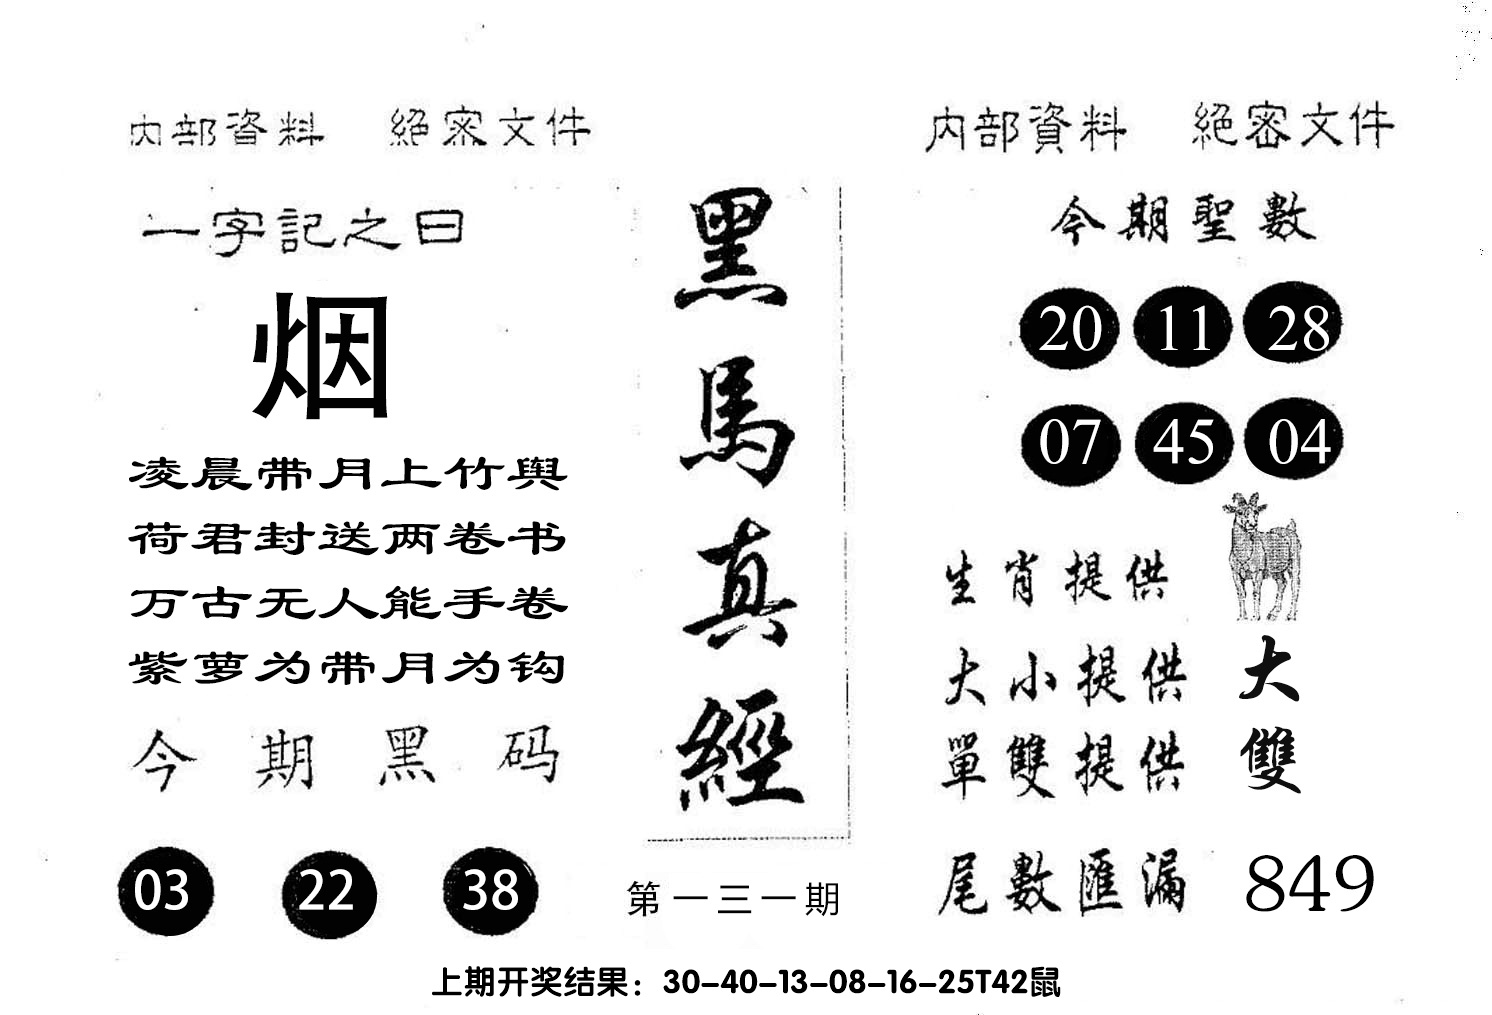 内部資料 絕密文件
一字記之曰
烟
凌晨带月上竹舆
荷君封送两卷书
万古无人能手卷
紫萝为带月为钩
今期黑码
03 22 38
黑馬真經
第一三一期
内部資料 絕密文件
今期聖數
20 11 28
07 45 04
生肖提供
大小提供 大
單雙提供 雙
尾數匯漏 849
上期开奖结果：30-40-13-08-16-25T42鼠